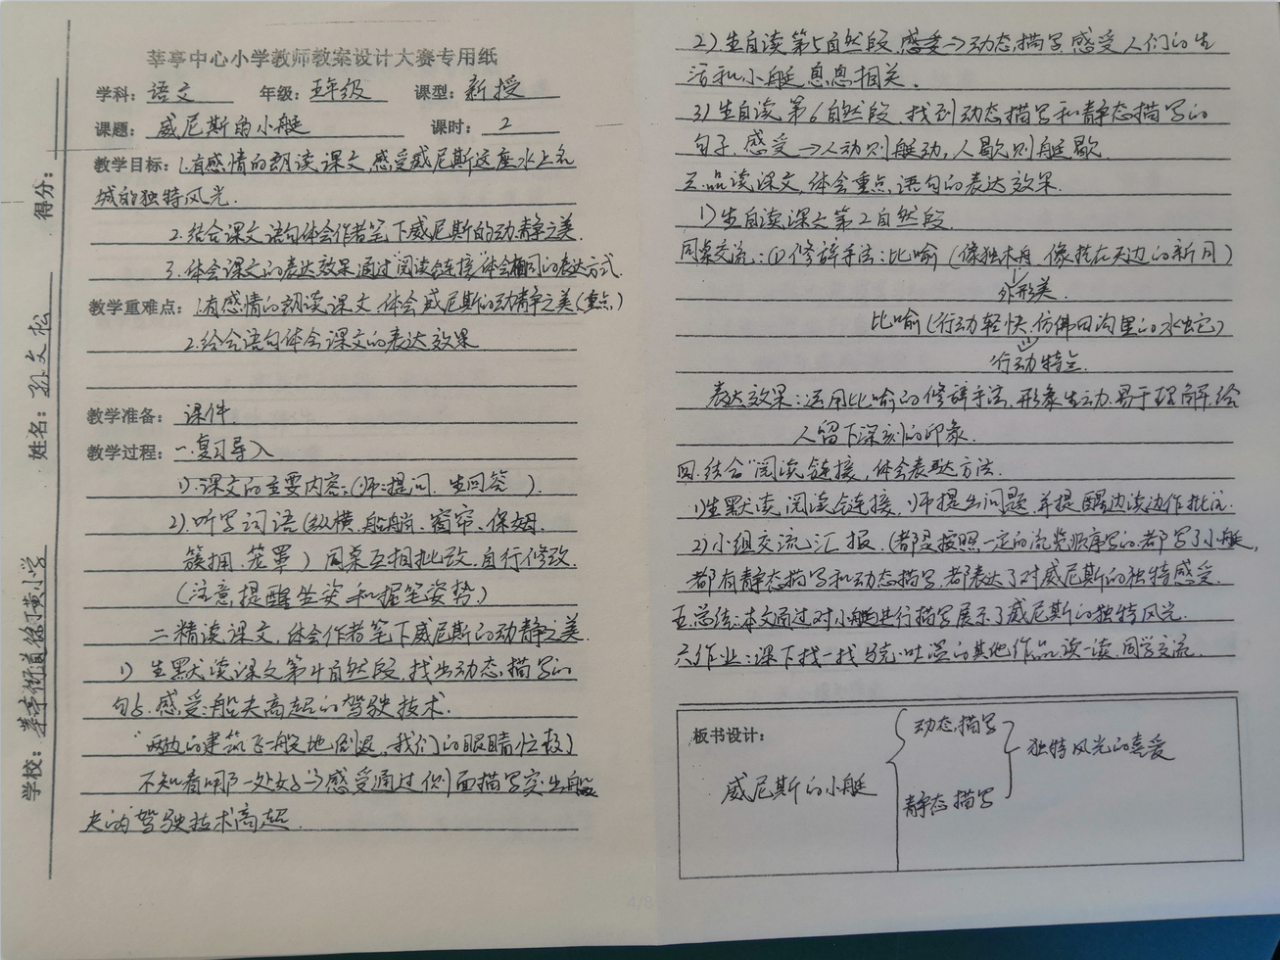 莘亭中心小学教师教案设计大赛专用纸
学科：语文 年级：五年级 课型：新授
课题：威尼斯的小艇 课时：2
教学目标：1.有感情的朗读课文,感受威尼斯这座水上名
城的独特风光.
2.结合课文语句体会作者笔下威尼斯的动静之美.
3.体会课文的表达效果,通过"阅读链接"体会相同的表达方式.
教学重难点：1.有感情的朗读课文,体会威尼斯的动静之美(重点)
2.结合语句体会课文的表达效果
教学准备：课件.
教学过程：一.复习导入
1).课文的主要内容:(师:提问. 生回答).
2).听写词语(纵横.船艄.窗帘.保姆.
簇拥.笼罩)同桌互相批改.自行修改.
(注意提醒坐姿和握笔姿势)
二精读课文,体会作者笔下威尼斯的动静之美.
1) 生默读课文第4自然段,找出动态描写的
句子.感受:船夫高超的驾驶技术.
"两边的建筑飞一般地倒退,我们的眼睛忙极了
不知看哪一处好"→感受通过侧面描写突出船
夫的驾驶技术高超.
得分：
姓名：孙文松
学校：莘亭街道徐丁黄小学
2)生自读第5自然段,感受→动态描写.感受人们的生
活和小艇息息相关.
3)生自读第6自然段,找到动态描写和静态描写的
句子.感受→人动则艇动,人歇则艇歇.
三.品读课文,体会重点语句的表达效果.
1)生自读课文第2自然段.
同桌交流:(1)修辞手法:比喻(像独木舟,像挂在天边的新月)
外形美.
比喻(行动轻快,仿佛田沟里的水蛇)
行动特点.
表达效果:运用比喻的修辞手法,形象生动.易于理解,给
人留下深刻的印象.
四.结合"阅读链接,体会表达方法.
1)生默读,阅读链接,师提出问题,并提醒边读边作批注.
2)小组交流汇报.(都是按照一定的游览顺序写的.都写了小艇,
都有静态描写和动态描写,都表达了对威尼斯的独特感受.
五.总结:本文通过对小艇进行描写展示了威尼斯的独特风光.
六作业:课下找一找马克·吐温的其他作品读一读,同学交流.
板书设计：
动态描写
威尼斯的小艇 独特风光的喜爱
静态描写
4/8